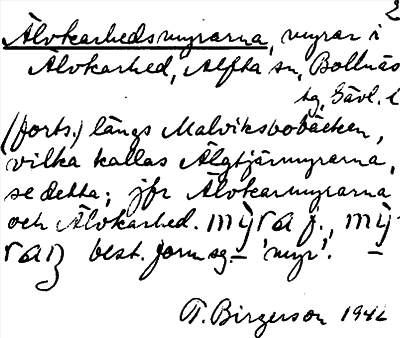 2
Älvkarhedsmyrarna, myrar i
Älvkarhed, Alfta sn, Bollnäs
tg, Gävl. l
(forts.) längs Malviksbobäcken,
vilka kallas Älgtjärmyrarna,
se detta; jfr Älvkarmyrarna
och Älvkarhed. mȳra f., mȳ-
raɳ best. form sg – 'myr'. –
T. Birgerson 1942